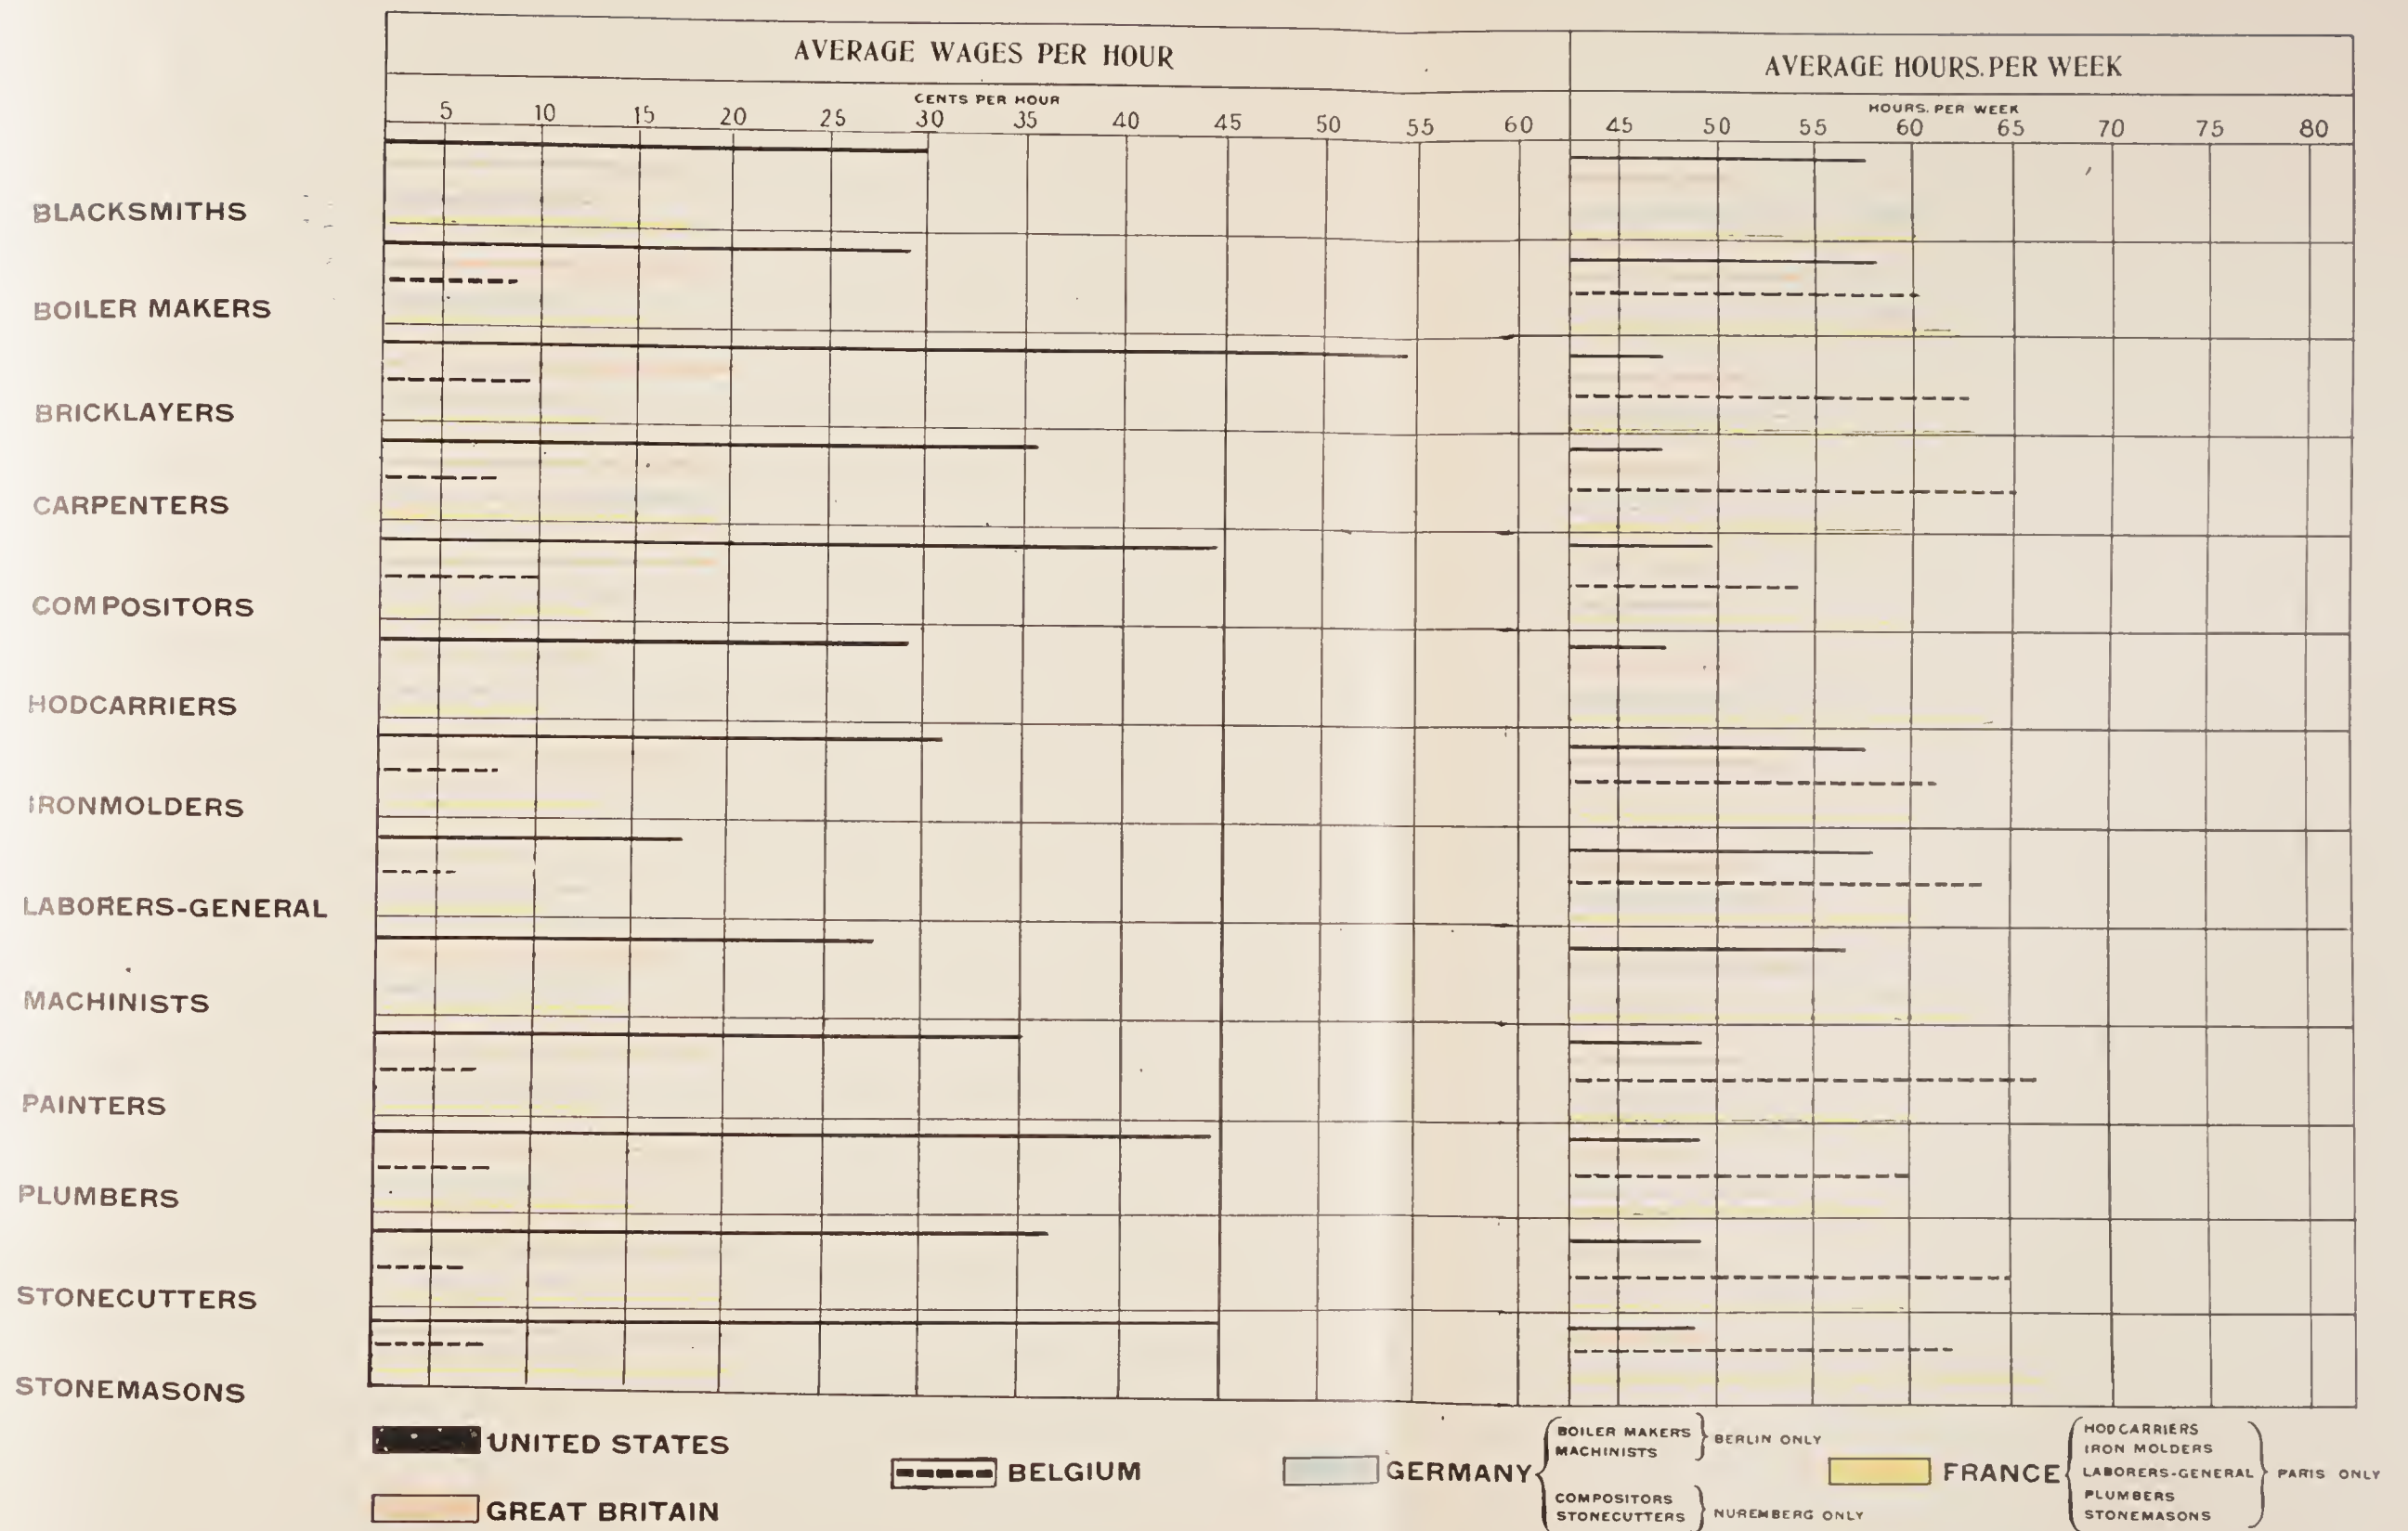 AVERAGE WAGES PER HOUR
AVERAGE HOURS. PER WEEK
CENTS PER HOUR
HOURS. PER WEEK
5 10 15 20 25 30 35 40 45 50 55 60
45 50 55 60 65 70 75 80
BLACKSMITHS
BOILER MAKERS
BRICKLAYERS
CARPENTERS
COMPOSITORS
HODCARRIERS
IRONMOLDERS
LABORERS-GENERAL
MACHINISTS
PAINTERS
PLUMBERS
STONECUTTERS
STONEMASONS
UNITED STATES
GREAT BRITAIN
BELGIUM
GERMANY
BOILER MAKERS
MACHINISTS
BERLIN ONLY
COMPOSITORS
STONECUTTERS
NUREMBERG ONLY
FRANCE
HODCARRIERS
IRON MOLDERS
LABORERS-GENERAL
PLUMBERS
STONEMASONS
PARIS ONLY